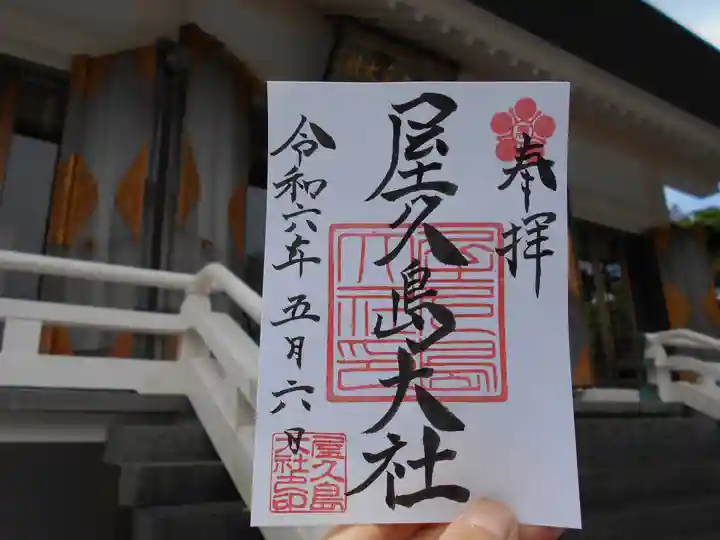 奉拝
屋久島大社
屋久島大社印
令和六年五月六日
屋久島大社之印